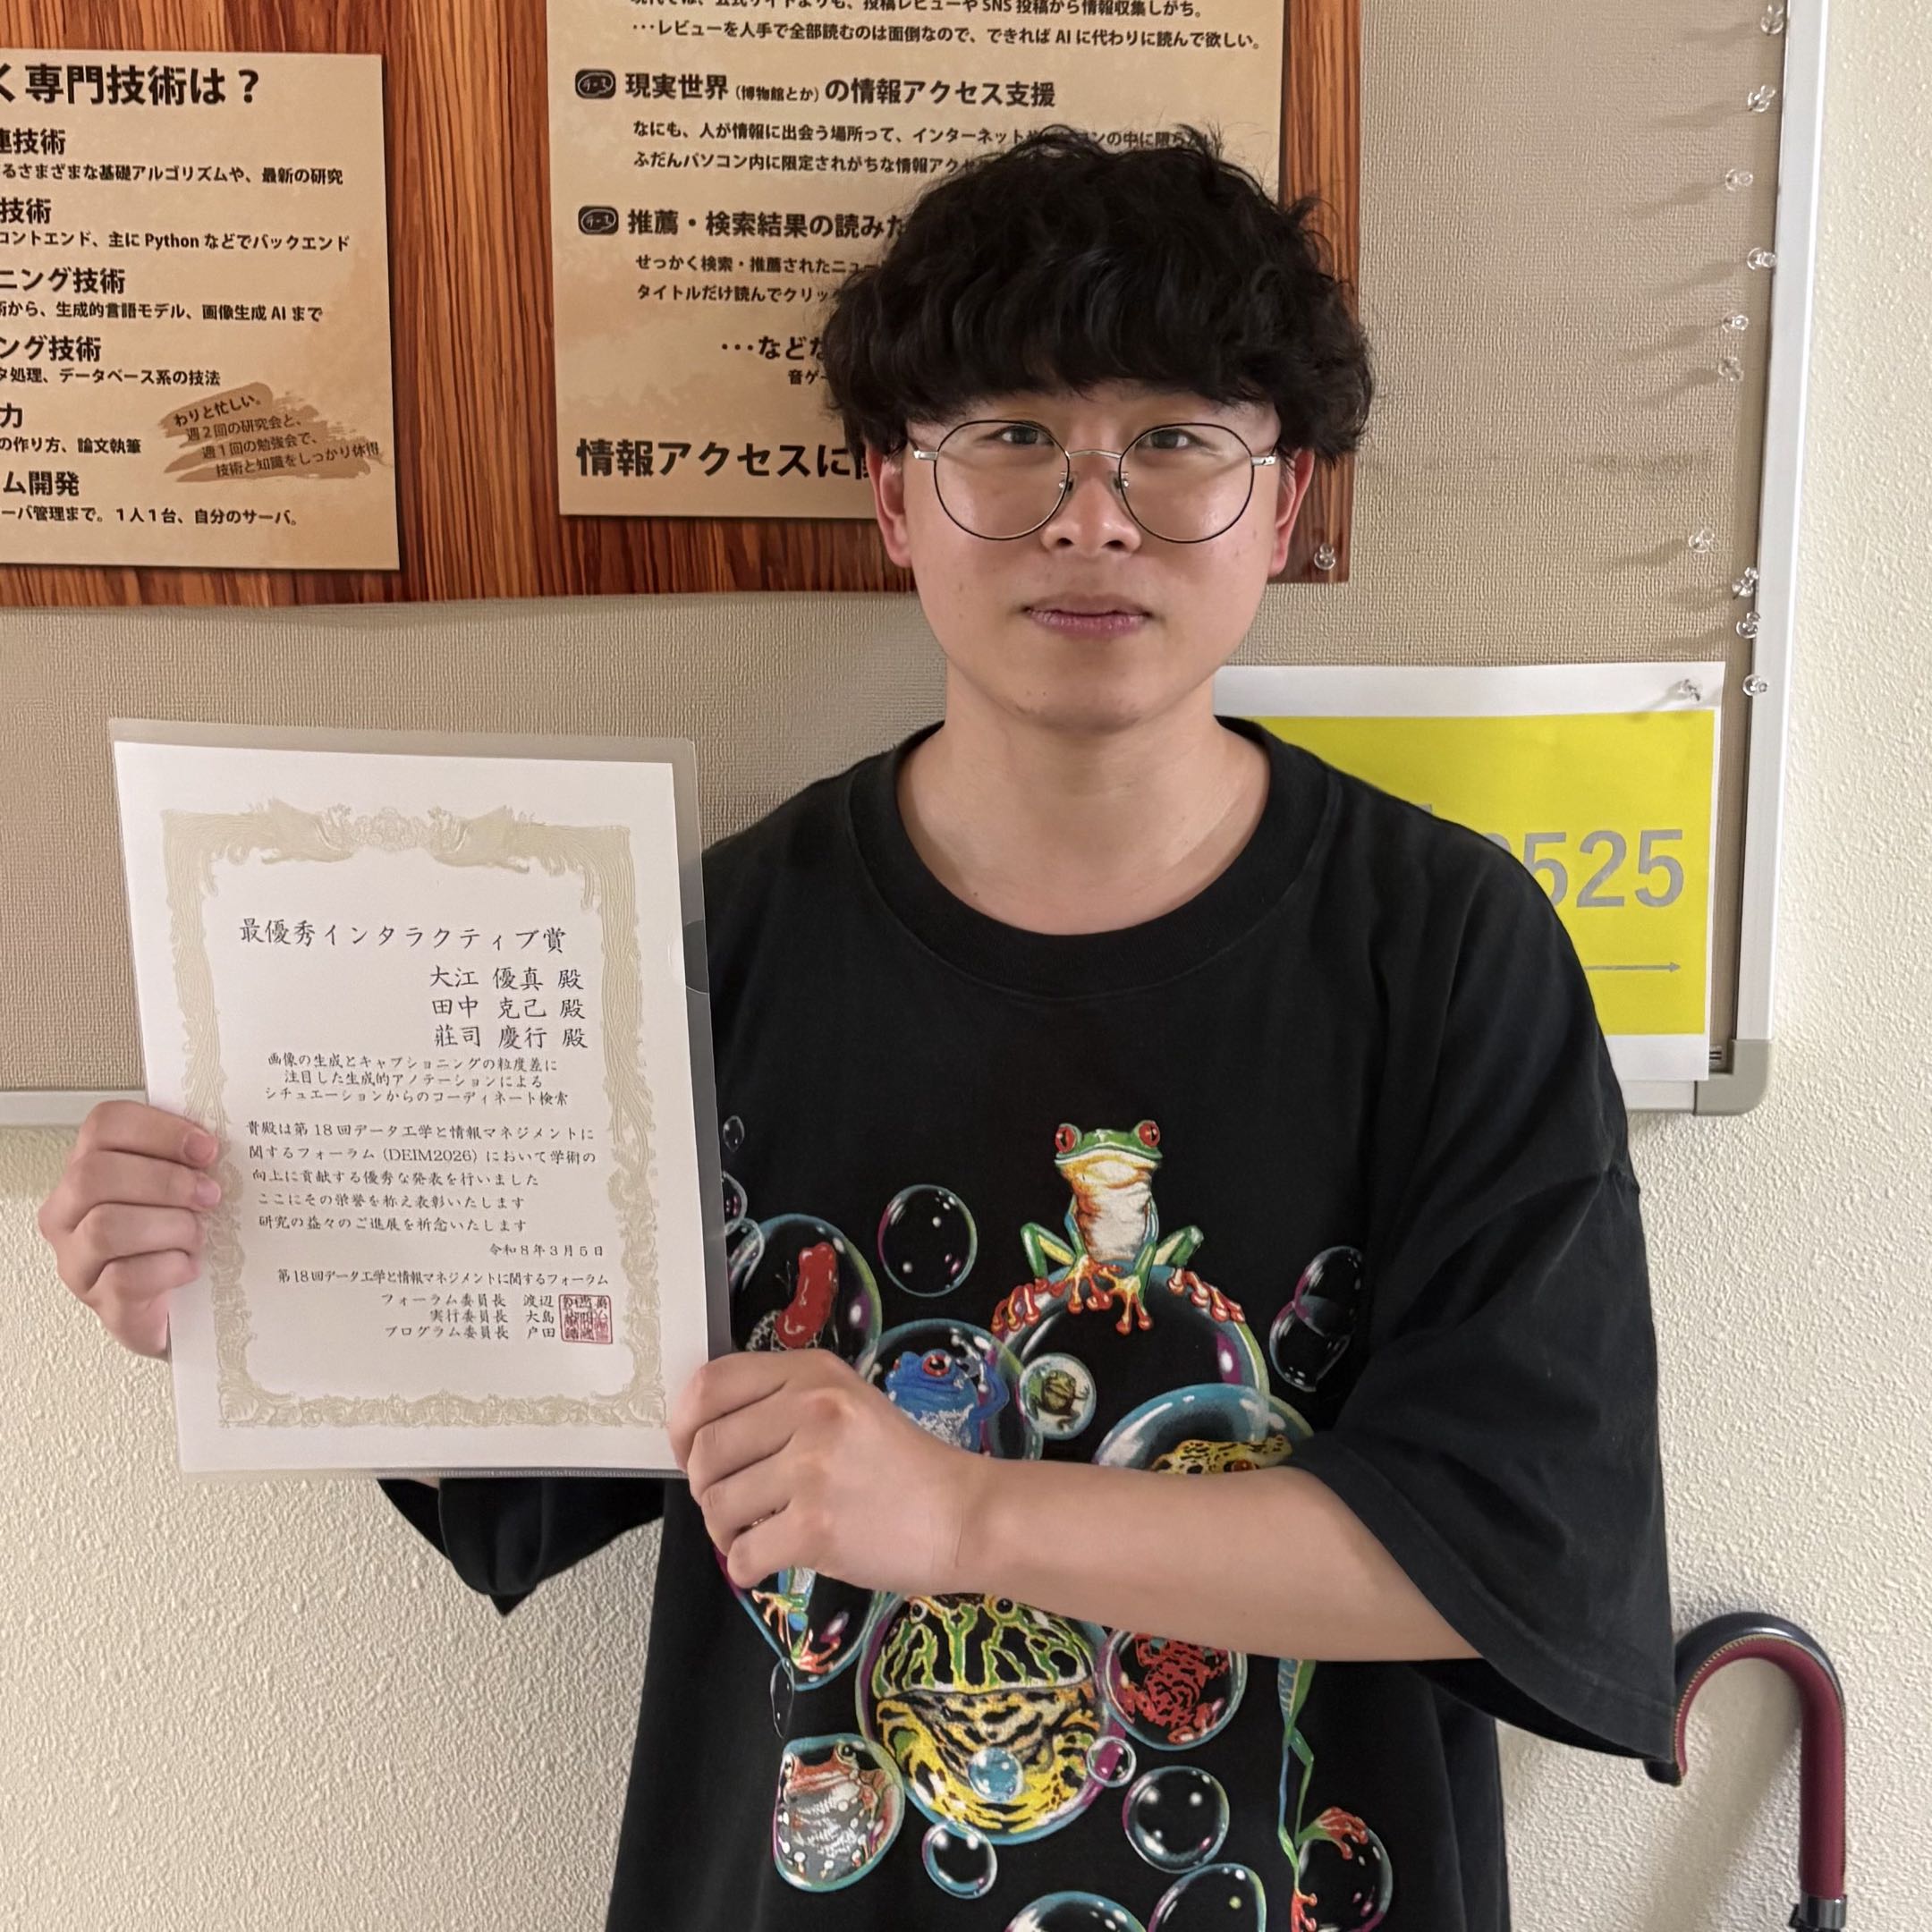 く専門技術は？
連技術
るさまざまな基礎アルゴリズムや、最新の研究
技術
コントエンド、主に Python などでバックエンド
ニング技術
術から、生成的言語モデル、画像生成 AI まで
ング技術
タ処理、データベース系の技法
力
の作り方、論文執筆
わりと忙しい。
週２回の研究会と、
週１回の勉強会で、
技術と知識をしっかり体得
ム開発
ーバ管理まで。１人１台、自分のサーバ。
現代では、公式サイトよりも、投稿レビューや SNS 投稿から情報収集しがち。
･･･レビューを人手で全部読むのは面倒なので、できれば AI に代わりに読んで欲しい。
現実世界（博物館とか）の情報アクセス支援
なにも、人が情報に出会う場所って、インターネットや
ンの中に限らない
ふだんパソコン内に限定されがちな情報アクセ
推薦・検索結果の読みた
せっかく検索・推薦されたニュー
タイトルだけ読んでクリック
･･･などな
音ゲー
情報アクセスに
525
最優秀インタラクティブ賞
大江 優真 殿
田中 克己 殿
莊司 慶行 殿
画像の生成とキャプショニングの粒度差に
注目した生成的アノテーションによる
シチュエーションからのコーディネート検索
貴殿は第 18 回データ工学と情報マネジメントに
関するフォーラム (DEIM2026) において学術の
向上に貢献する優秀な発表を行いました
ここにその栄誉を称え表彰いたします
研究の益々のご進展を祈念いたします
令和８年３月５日
第18回データ工学と情報マネジメントに関するフォーラム
フォーラム委員長 渡辺
実行委員長 大島
プログラム委員長 戸田